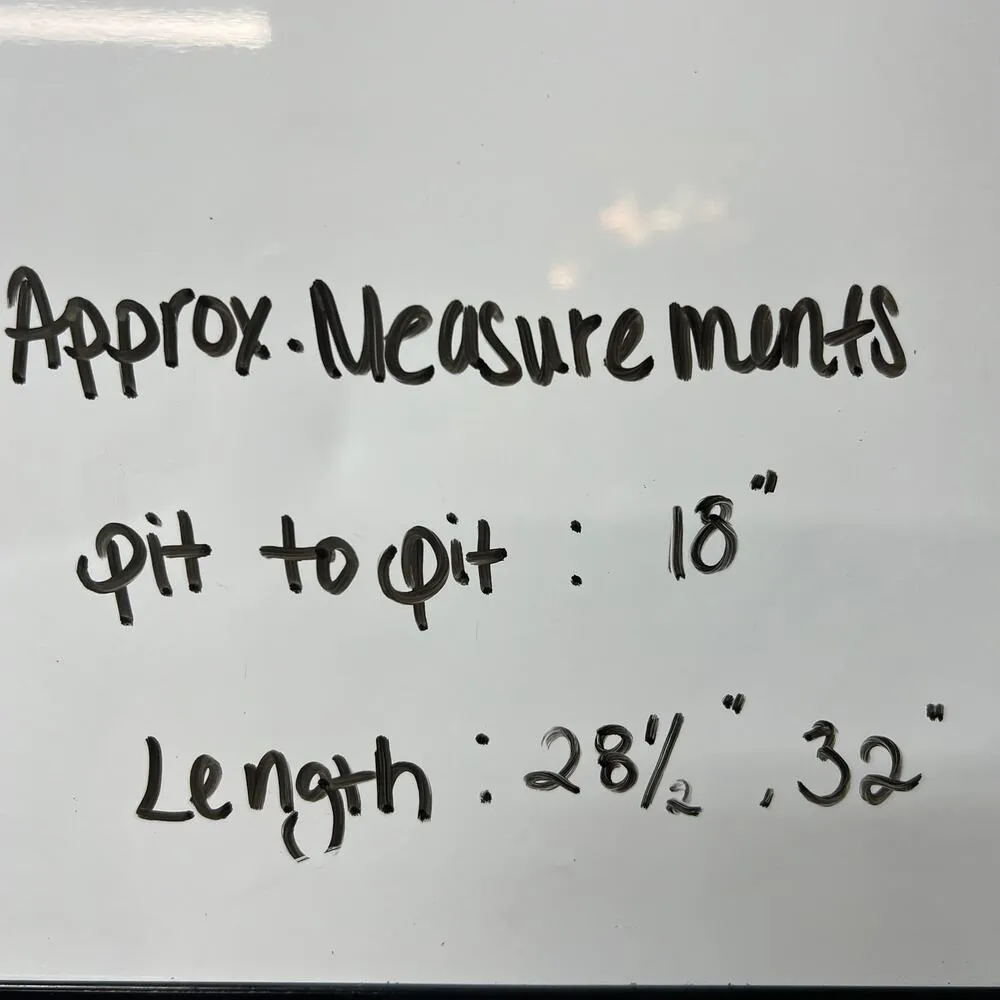 Approx. Measurements
pit to pit : 18"
Length : 28 1/2" . 32"